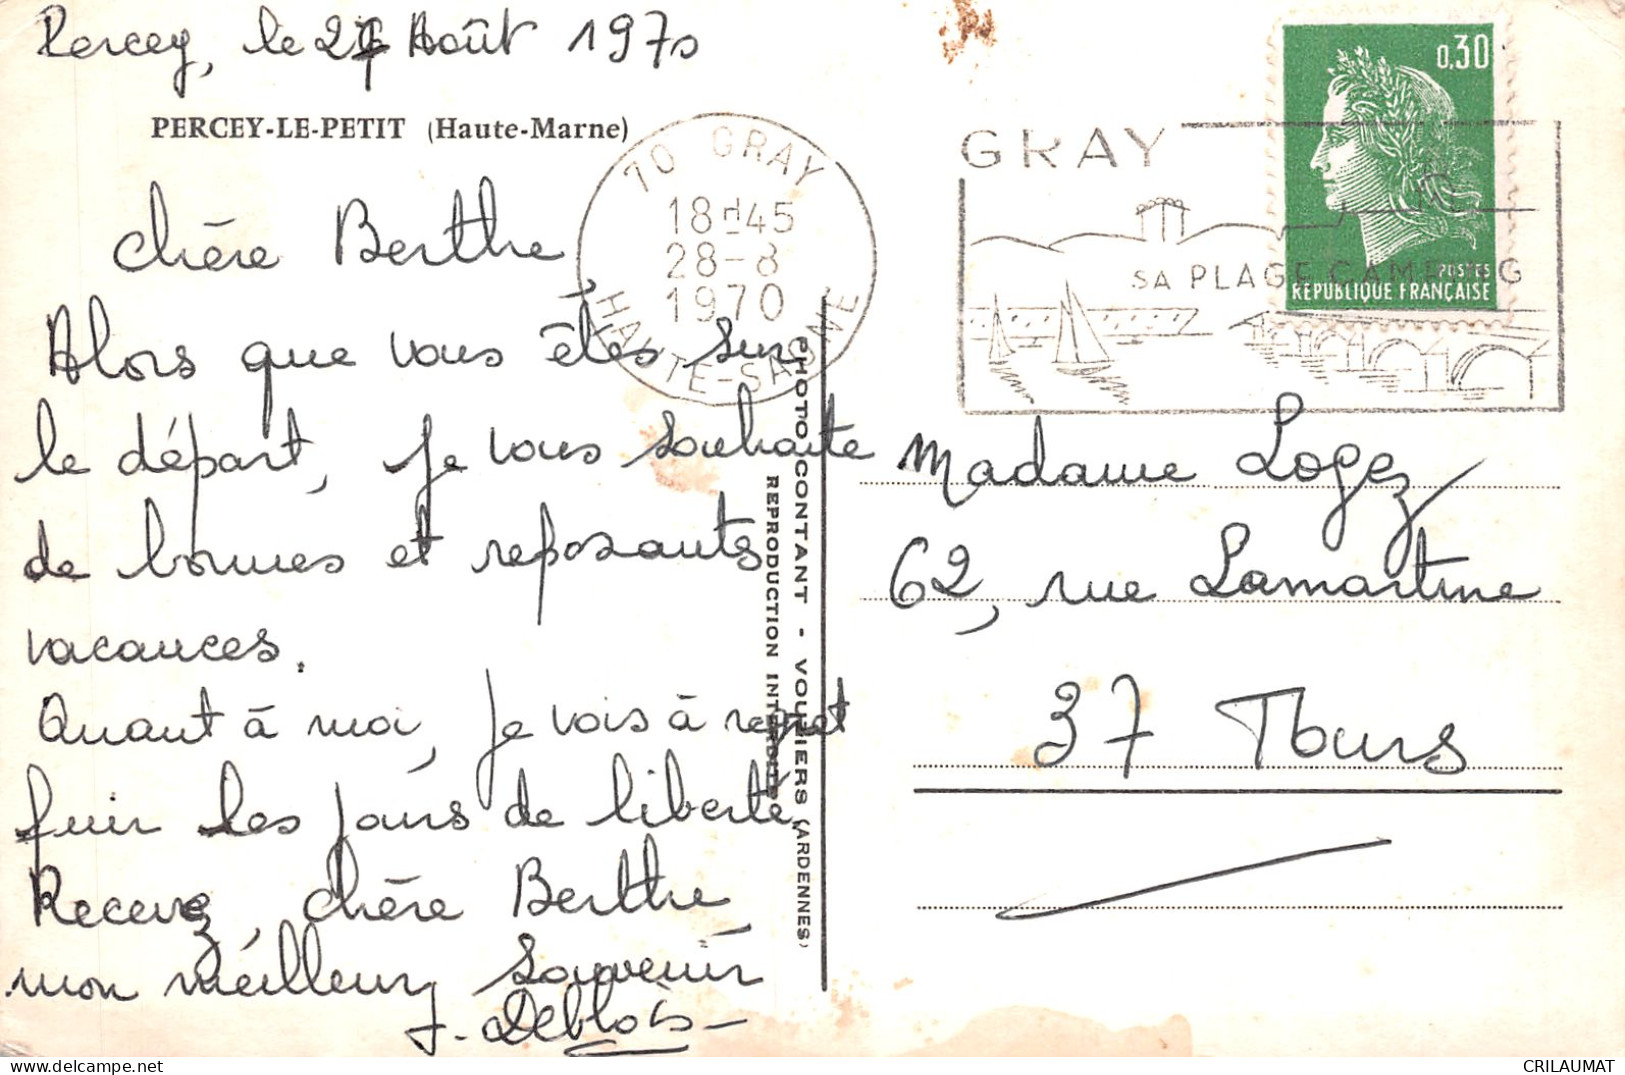 Percey, le 27 Août 1970
PERCEY-LE-PETIT (Haute-Marne)
Chère Berthe,
Alors que vous êtes sur
le départ, je vous souhaite
de bonnes et reposantes
vacances.
Quant à moi, je vois à regret
fuir les jours de liberté.
Recevez, chère Berthe,
mon meilleur souvenir
J. Deblois
70 GRAY
18H45
28-8
1970
HAUTE-SAONE
GRAY
SA PLAGE CAMPING
0,30
POSTES
REPUBLIQUE FRANÇAISE
PHOTO CONTANT - VOUZIERS (ARDENNES)
REPRODUCTION INTERDITE
Madame Logez
62, rue Lamartine
37 Tours
CRILAUMAT